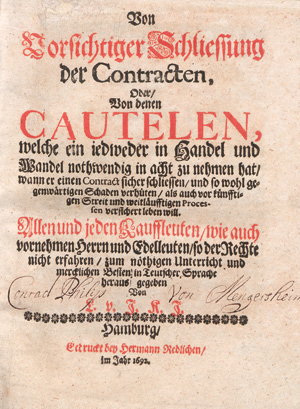 Von
Vorsichtiger Schliessung
der Contracten,
Oder/
Von denen
CAUTELEN,
welche ein iedweder in Handel und
Wandel nothwendig in acht zu nehmen hat/
wann er einen Contract sicher schliessen/ und so wohl ge-
genwärtigen Schaden verhüten/ als auch vor künffti-
gen Streit und weitläufftigen Proces-
sen versichert leben will.
Allen und jeden Kauffleuten/ wie auch
vornehmen Herrn und Edelleuten/ so der Rechte
nicht erfahren/ zum nöthigen Unterricht und
mercklichen Besten/ in Teutscher Sprache
heraus gegeben
Von
Conrad Philip Von Mengersheim
L. V. J. K. J.
Hamburg/
Getruckt bey Hermann Redlichen/
im Jahr 1692.